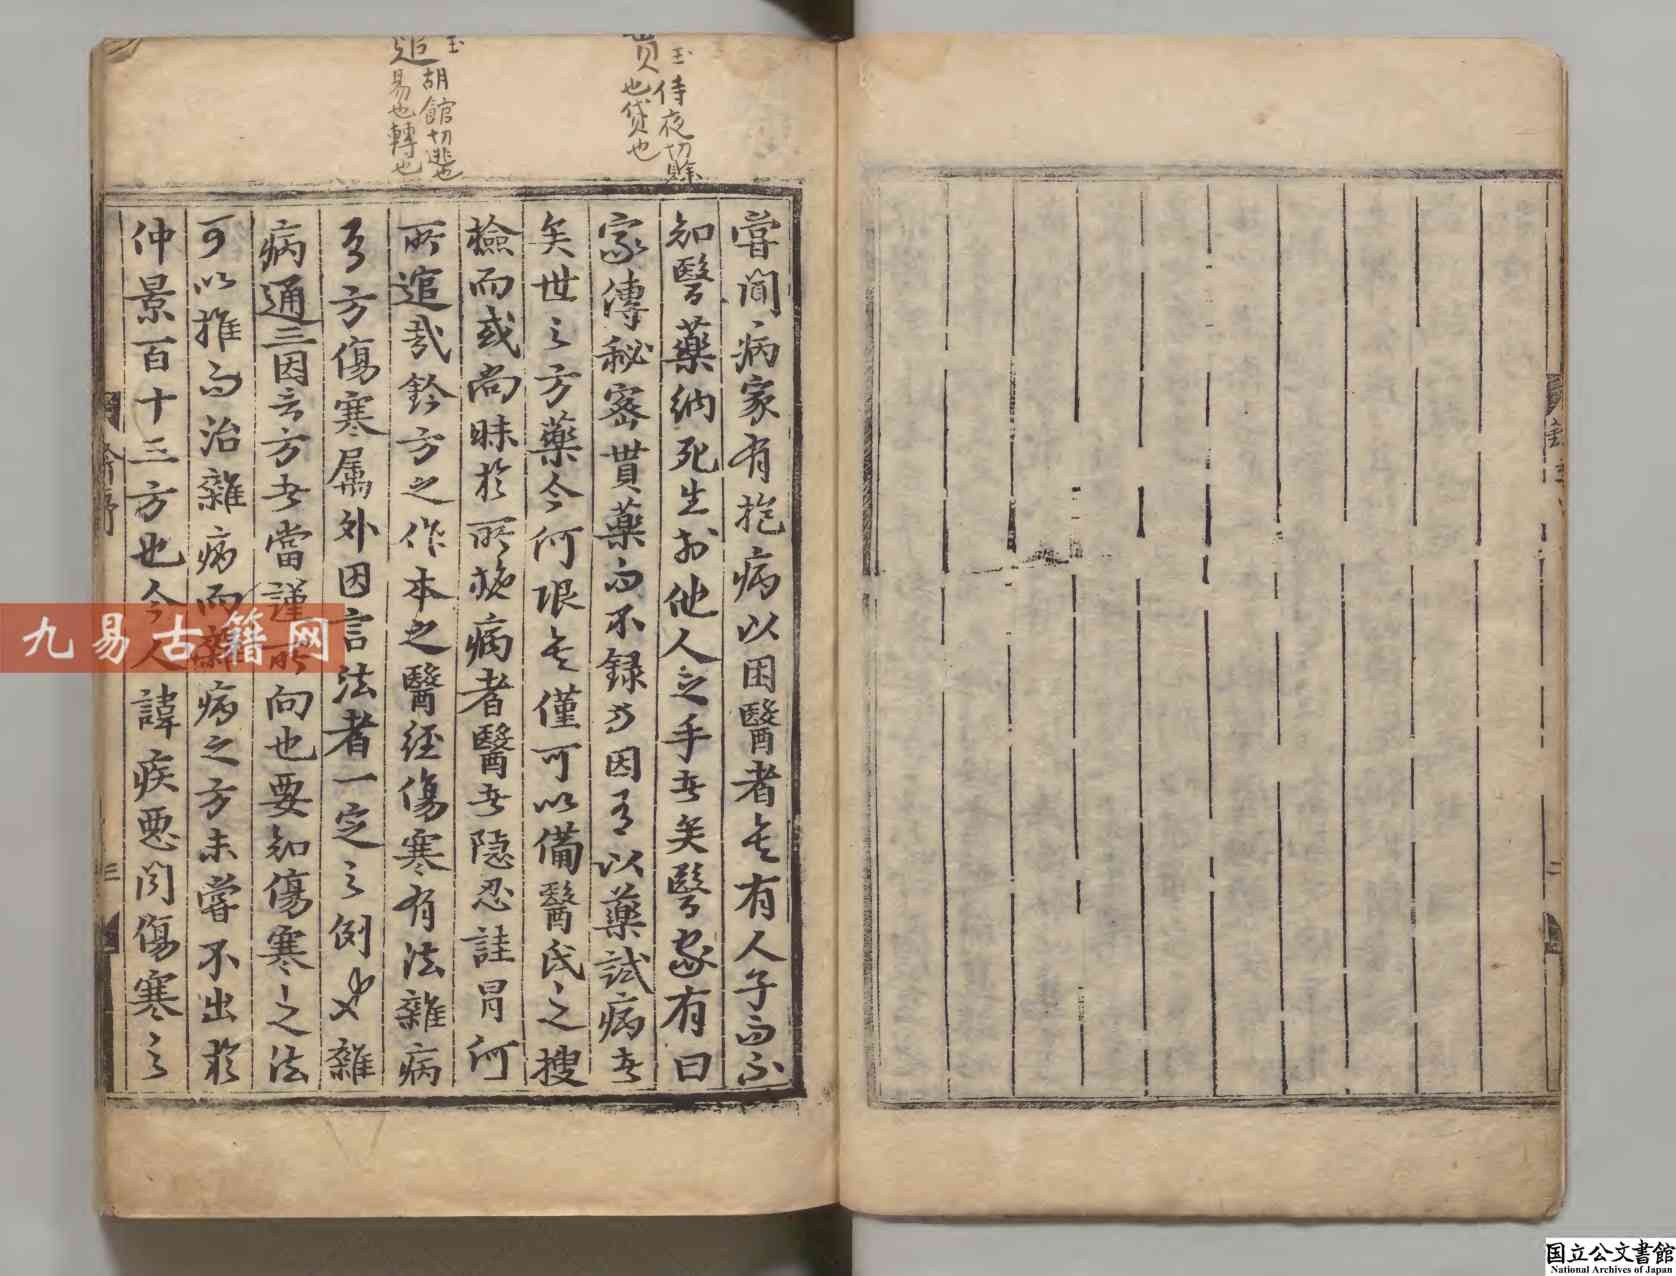 嘗聞病家有抱病以困醫者無有人子而不
知醫藥納死生於他人之手者矣醫家有曰
家傳秘密貰藥而不錄方因有以藥試病者
矣世之方藥今何限無僅可以備醫氏之搜
檢而或尚昧於所施病者醫者隐忍詿冒何
所逭哉鈐方之作本之醫經傷寒有法雜病
有方傷寒属外因言法者一定之例也雜
病通三因言方者當謹所向也要知傷寒之法
可以推而治雜病而雜病之方未嘗不出於
仲景百十三方也今人諱疾惡聞傷寒之
玉侍夜切賖
貰也貸也
玉胡館切逃也
逭易也轉也
鈐序
三
二
九易古籍网
国立公文書館
National Archives of Japan